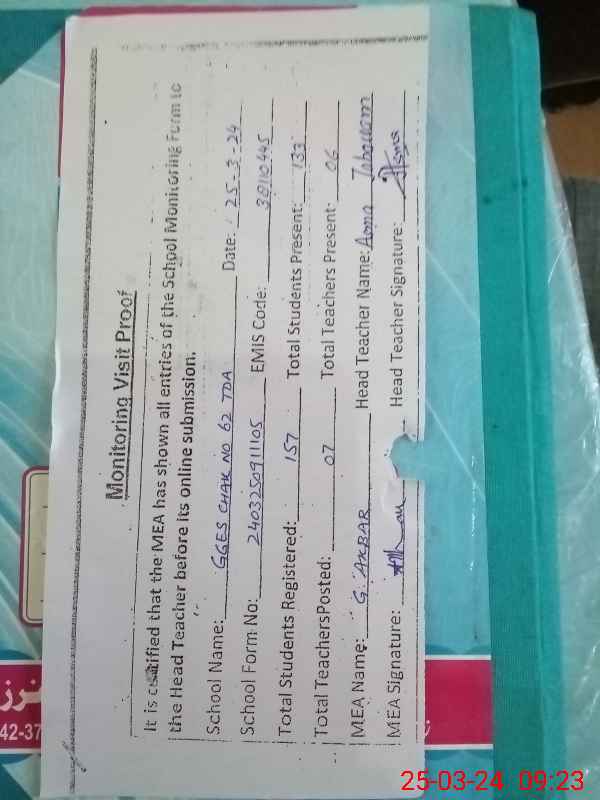 Monitoring Visit Proof
It is certified that the MEA has shown all entries of the School Monitoring Form to
the Head Teacher before its online submission.
School Name: GGES CHAK NO 62 TDA Date: 25-3-24
School Form No: 2403250911105 EMIS Code: 38110445
Total Students Registered: 157 Total Students Present: 133
Total Teachers Posted: 07 Total Teachers Present: 06
MEA Name: G. AKBAR Head Teacher Name: Asma Tabassam
MEA Signature: Head Teacher Signature: Asma
42-37
25-03-24 09:23